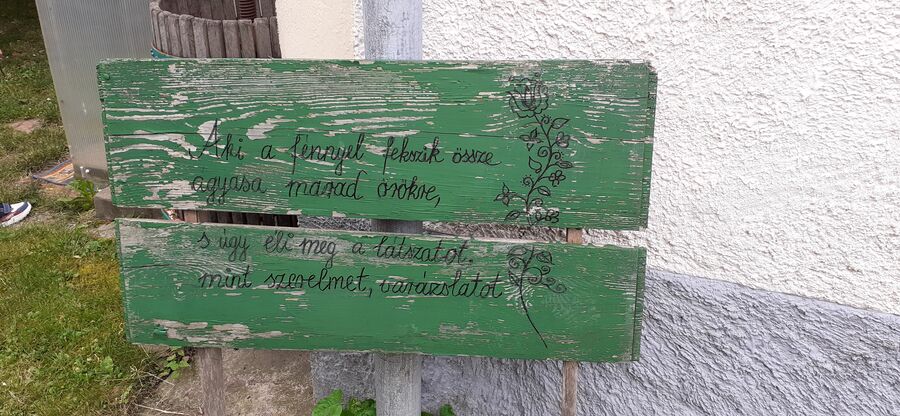 Aki a fénnyel fekszik össze
agyasa marad örökre,
s úgy éli meg a látszatot.
mint szerelmet, varázslatot